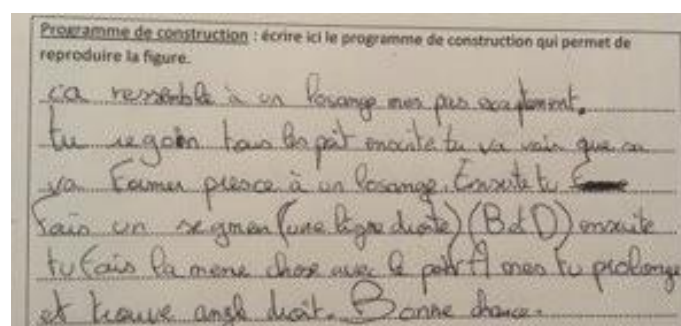 Programme de construction : écrire ici le programme de construction qui permet de
reproduire la figure.
ça ressemble à un losange mes pas exaptement.
tu regoin tous les pot ensuite tu va voir que sa
va former presce à un losange. Ensuite tu
Fais un segmen (une ligne droite) (B et D) ensuite
tu fais la meme chose avec le poin A mes tu prolonge
et trouve angle droit. Bonne chance.